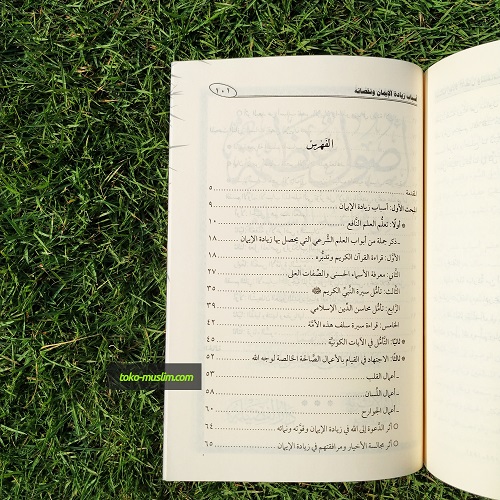 أسباب زيادة الإيمان ونقصانه
١٠١
الفَهْرِسُ
المقدمة ٥
المبحث الأول: أسباب زيادة الإيمان ٩
أولًا: تعلُّم العلم النَّافع ١٠
ـ ذكر جملة من أبواب العلم الشَّرعي التي يحصل بها زيادة الإيمان ١٨
الأوَّل: قراءة القرآن الكريم وتدبُّره ١٨
الثَّاني: معرفة الأسماء الحسنى والصِّفات العلى ٢٧
الثَّالث: تأمُّل سيرة النَّبيِّ الكريم ﷺ ٣٥
الرَّابع: تأمُّل محاسن الدِّين الإسلامي ٣٩
الخامس: قراءة سيرة سلف هذه الأمَّة ٤٢
ثانيًا: التَّأمُّل في الآيات الكونيَّة ٤٥
ثالثًا: الاجتهاد في القيام بالأعمال الصَّالحة الخالصة لوجه الله ٥٢
ـ أعمال القلب ٥٣
ـ أعمال اللِّسان ٥٨
ـ أعمال الجوارح ٦٠
○ أثر الدَّعوة إلى الله في زيادة الإيمان وقوَّته ونمائه ٦٤
○ أثر مجالسة الأخيار ومرافقتهم في زيادة الإيمان ٦٥
toko-muslim.com